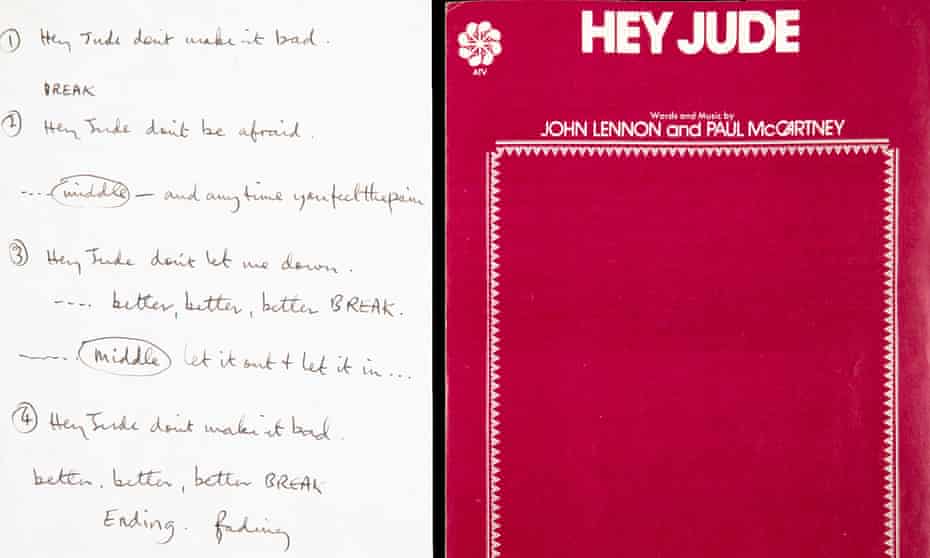 ① Hey Jude don't make it bad.
BREAK
② Hey Jude don't be afraid.
---- middle – and anytime you feel the pain
③ Hey Jude don't let me down.
---- better, better, better BREAK.
----. middle let it out + let it in ...
④ Hey Jude don't make it bad.
better, better, better BREAK
Ending. fading
HEY JUDE
ATV
Words and Music by
JOHN LENNON and PAUL McCARTNEY